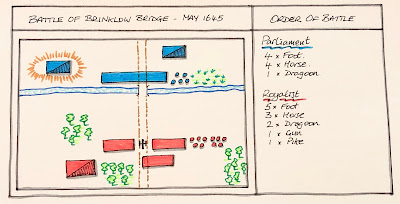 BATTLE OF BRINKLOW BRIDGE - MAY 1645
ORDER OF BATTLE
Parliament
4 x Foot.
4 x Horse.
1 x Dragoon
Royalist
5 x Foot
3 x Horse
2 x Dragoon
1 x Gun
1 x Pike